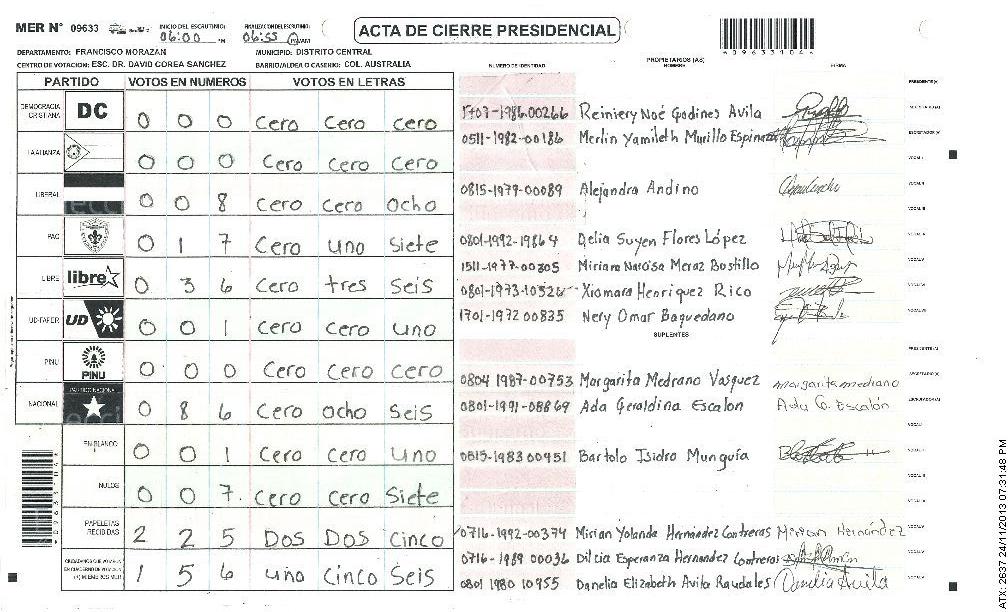 MER N° 09633 INICIO DEL ESCRUTINIO: 06:00 PM FINALIZACION DEL ESCRUTINIO: 06:55 PM/AM ACTA DE CIERRE PRESIDENCIAL
DEPARTAMENTO: FRANCISCO MORAZAN MUNICIPIO: DISTRITO CENTRAL
CENTRO DE VOTACION: ESC. DR. DAVID COREA SANCHEZ BARRIO/ALDEA O CASERIO: COL. AUSTRALIA
PARTIDO VOTOS EN NUMEROS VOTOS EN LETRAS
DEMOCRACIA CRISTIANA DC 0 0 0 Cero Cero cero
LA ALIANZA 0 0 0 Cero Cero Cero
LIBERAL 0 0 8 Cero Cero Ocho
PAC 0 1 7 Cero uno Siete
LIBRE libre 0 3 6 Cero tres Seis
UD-FAPER UD 0 0 1 Cero Cero uno
PINU PINU 0 0 0 Cero Cero cero
NACIONAL PARTIDO NACIONAL 0 8 6 Cero ocho Seis
EN BLANCO 0 0 1 Cero Cero uno
NULOS 0 0 7. Cero Cero Siete
PAPELETAS RECIBIDAS 2 2 5 DOS DOS Cinco
1 5 6 uno Cinco Seis
NUMERO DE IDENTIDAD PROPIETARIOS (AS) NOMBRE FIRMA
1707-1986.00266 Reiniery Noé Godines Avila
0511-1982-00186 Merlin Yamileth Murillo Espinoza
0815-1979-00089 Alejandra Andino
0801-1992-19864 Delia Suyen Flores López
1511-1977-00305 Miriam Narcisa Meraz Bustillo
0801-1973-10526 Xiomara Henriquez Rico
1701-1972 00835 Nery Omar Baquedano
SUPLENTES
0804 1987-00753 Margarita Medrano Vasquez margarita medrano
0801-1991-08869 Ada Geraldina Escalon Ada G. Escalón
0815-1983 00951 Bartolo Isidro Munguía
0716-1992-00374 Mirian Yolanda Hernández Contreras Mirian Hernández
0716-1989 00036 Dilcia Esperanza Hernandez Contreras
0801 1980 10955 Danelia Elizabeth Avila Raudales Danelia Avila
ATX: 2637 24/11/2013 07:31:48 PM